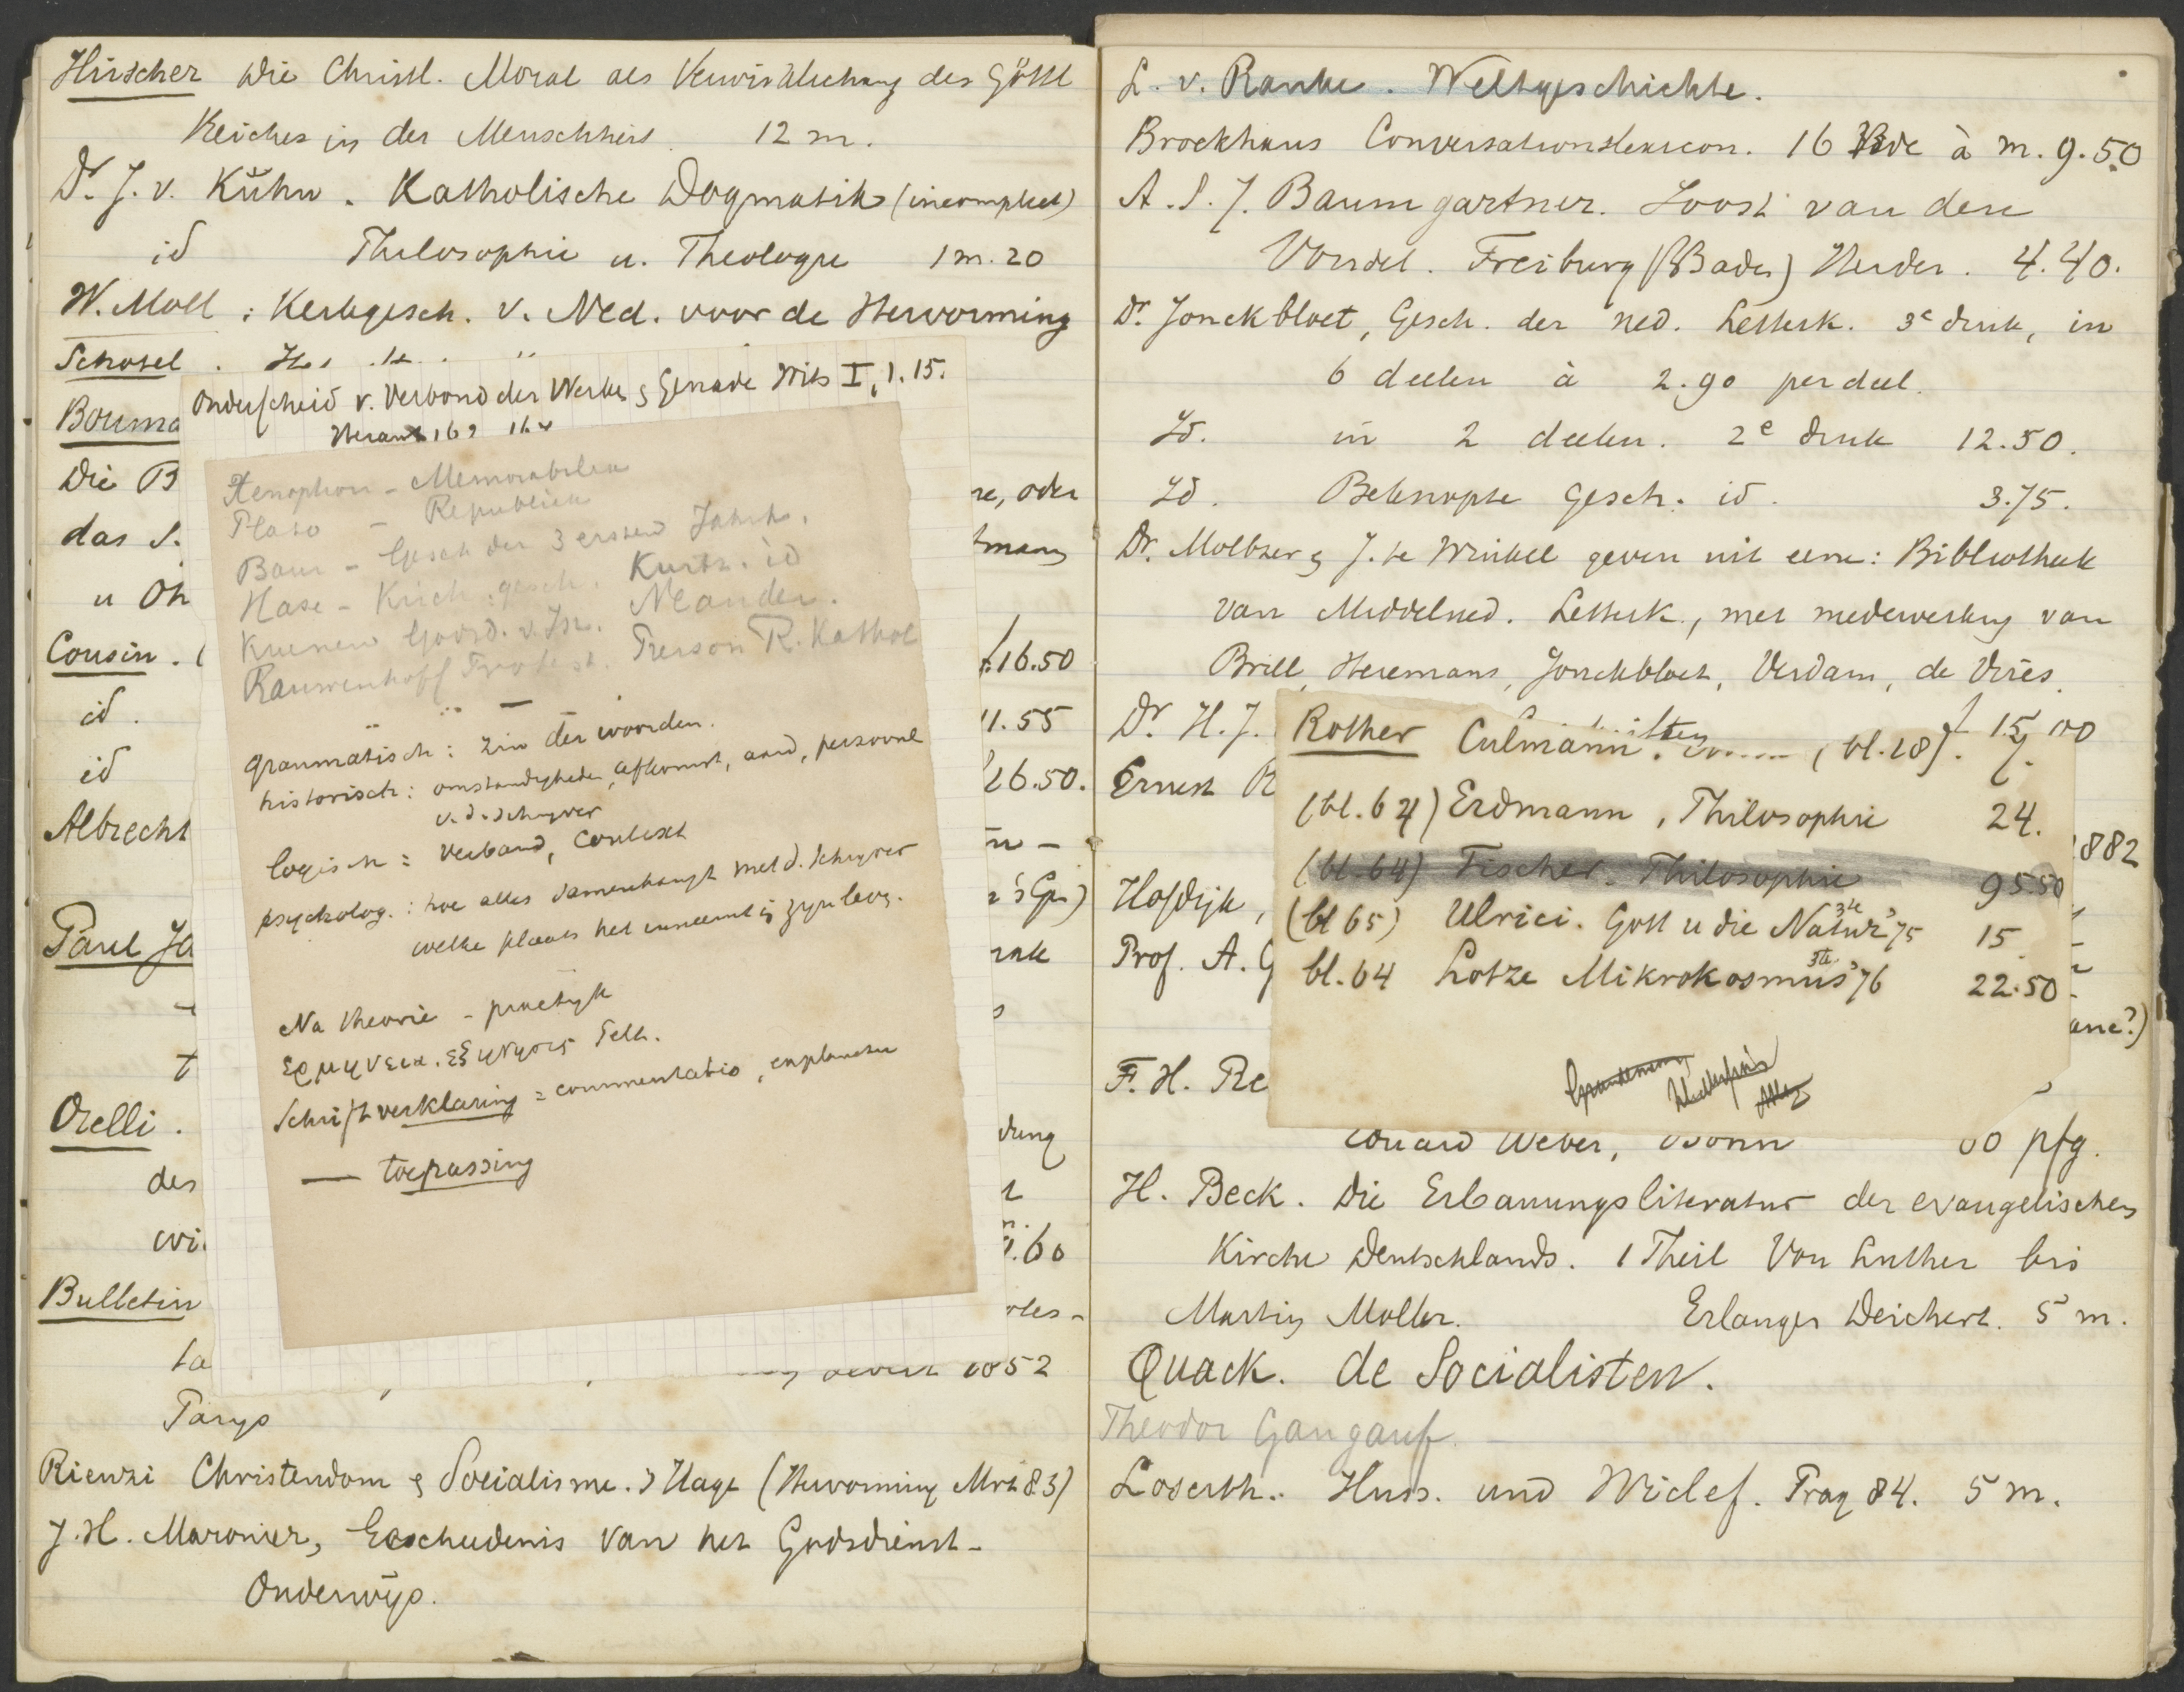 Hirscher Die Christl. Moral als Verwirklichung des Göttl
Reiches in der Menschheit. 12 m.
Dr. J. v. Kŭhn. Katholische Dogmatik (incompleet)
id Philosophie u. Theologie 1 m. 20
W. Moll: Kerkgesch. v. Ned. voor de Hervorming
Schotel.
Bouma
Die B
das S.
u Oh
Cousin.
id.
id
Albrecht
Paul Ja
Orelli.
des
Bulletin
ta
Parys
Rienzi Christendom & Socialisme. 's Hage (Hervorming Mrt 83)
J. H. Maronier, Geschiedenis van het Godsdienst-
Onderwijs.
Onderscheid v. Verbond der Werken & Genade Wits I, 1. 15.
Xenophon - Memorabilen
Plato - Republiek
Baur - Gesch der 3 ersten Jahrh.
Hase - Kirch. gesch. Kurtz. id
Kuenen Godsd. v. Isr. Neander.
Rauwenhoff Protest. Pierson R. Kathol
grammatisch: zin der woorden.
historisch: omstandigheden, afkomst, aard, persoonl
v. d. schryver
logisch: verband, context
psycholog.: hoe alles samenhangt met d. schryver
welke plaats het inneemt in zyn lev.
Na theorie - practijk
ερμηνεια. εξηγησις
Schriftverklaring = commentatio, explanatio
— toepassing
re, oder
16.50
11.55
26.50.
dung
9.60
1852
L. v. Ranke. Weltgeschichte.
Brockhaus Conversationslexicon. 16 Bde à m. 9.50
A. S. J. Baumgartner. Joost van den
Vondel. Freiburg (Baden) Herder. 4.40.
Dr. Jonckbloet, Gesch. der ned. Letterk. 3e druk, in
6 deelen à 2.90 per deel.
Id. in 2 deelen. 2e druk 12.50.
Id. Beknopte Gesch. id. 3.75.
Dr. Moltzer & J. te Winkel geven uit eene: Bibliotheek
van Middelned. Letterk., met medewerking van
Brill, Heremans, Jonckbloet, Verdam, de Vries.
Dr H. J.
f 15,00
Ernest R
1882
Hofdijk,
Prof. A. G
F. H. Re
Rother Culmann. (bl. 28). 7.
(bl. 64) Erdmann, Philosophie 24.
(bl. 64) Fischer. Philosophie 95.50
(bl 65) Ulrici. Gott u die Natur 3te '75 15
bl. 64 Lotze Mikrokosmus 3te '76 22.50
Eduard Weber, Bonn 60 pfg.
H. Beck. Die Erbauungsliteratur der evangelischen
Kirche Deutschlands. 1 Theil Von Luther bis
Martin Moller. Erlangen Deichert. 5 m.
Quack. de Socialisten.
Theodor Gangauf
Loserth. Huss. und Wiclef. Prag 84. 5 m.